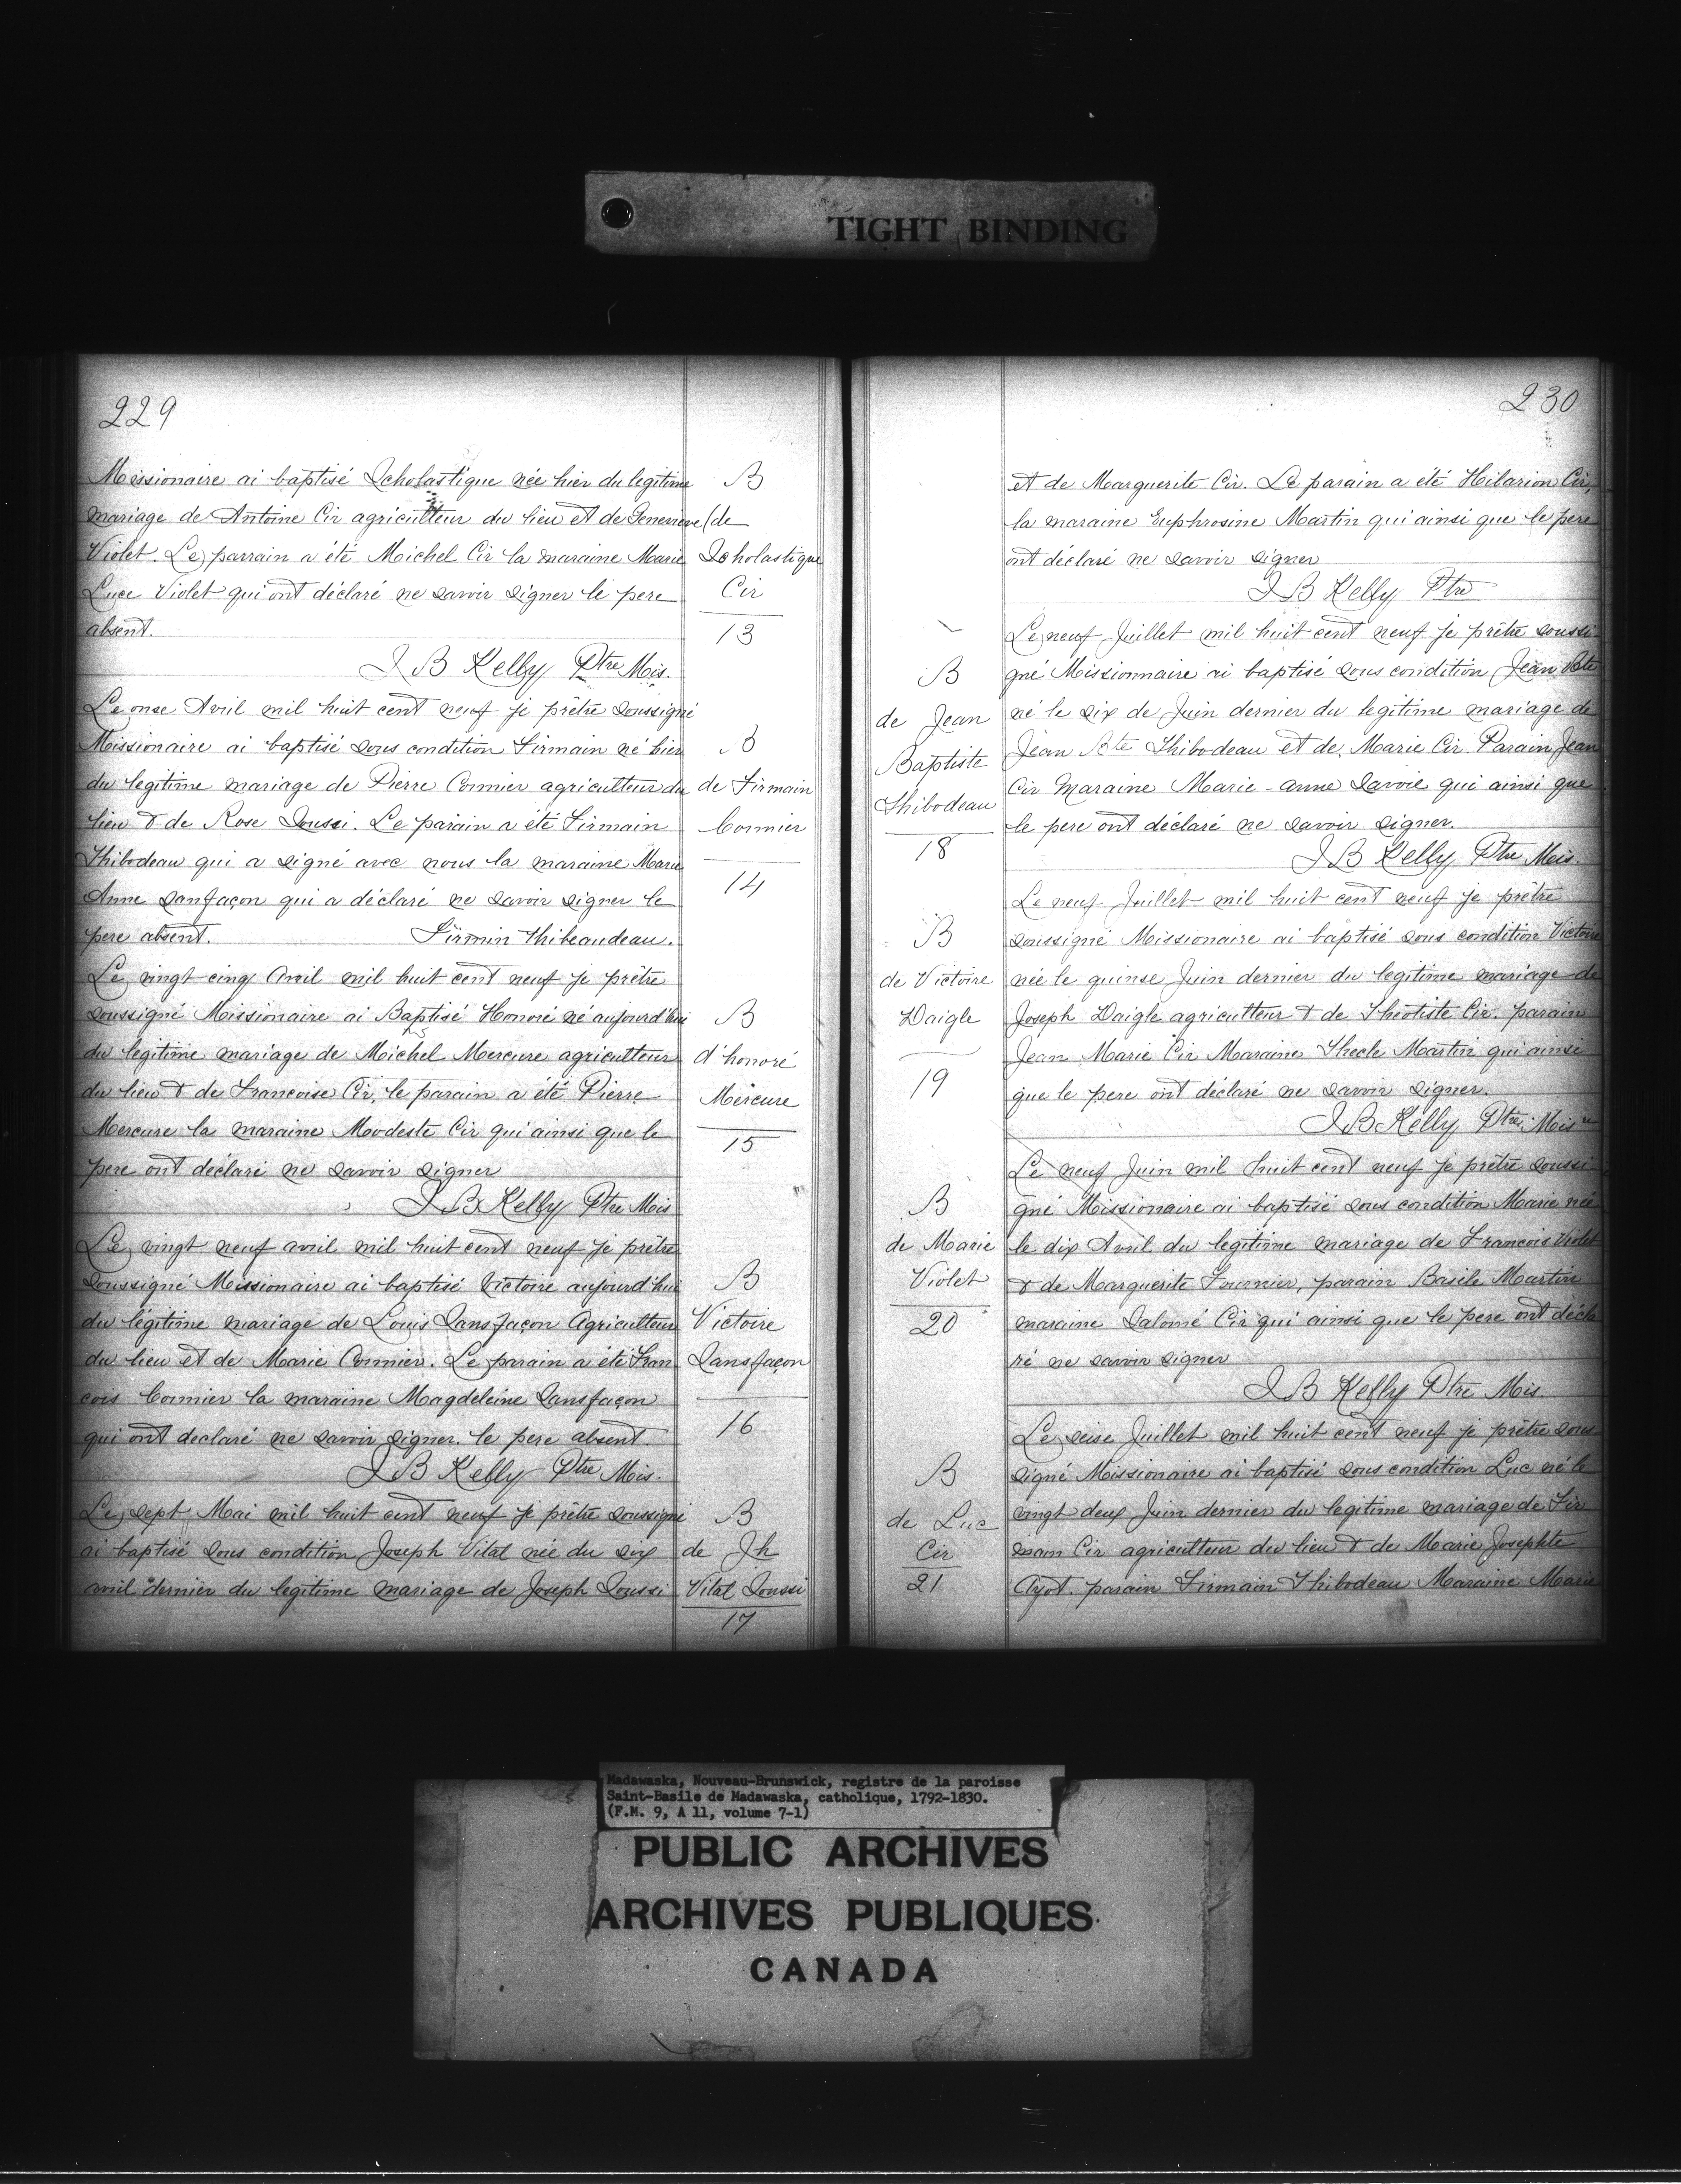 TIGHT BINDING
229
Missionaire ai baptisé Scholastique née hier du legitime
mariage de Antoine Cir agriculteur du lieu et de Genevieve
Violet. Le parrain a été Michel Cir la maraine Marie
Luce Violet qui ont déclaré ne savoir signer le pere
absent.
J B Kelly Ptre Mis.
B
(de
Scholastique
Cir
13
Le onse Avril mil huit cent neuf je prêtre soussigné
Missionaire ai baptisé sous condition Firmain né hier
du legitime mariage de Pierre Cormier agriculteur du
lieu & de Rose Soussi. Le parain a été Firmain
Thibodeau qui a signé avec nous la maraine Marie
Anne Sansfaçon qui a déclaré ne savoir signer le
pere absent. Firmin Thibeaudeau.
B
de Firmain
Cormier
14
Le vingt cinq Avril mil huit cent neuf je prêtre
soussigné Missionaire ai Baptisé Honoré né aujourd'hui
du legitime mariage de Michel Mercure agriculteur
du lieu & de Francoise Cir, le parain a été Pierre
Mercure la maraine Modeste Cir qui ainsi que le
pere ont déclaré ne savoir signer
J B Kelly Ptre Mis
B
d'honoré
Mercure
15
Le vingt neuf avril mil huit cent neuf je prêtre
soussigné Missionaire ai baptisé Victoire aujourd'hui
du légitime mariage de Louis Sansfaçon Agriculteur
du lieu et de Marie Cormier. Le parain a été Fran
cois Cormier la maraine Magdeleine Sansfaçon
qui ont declaré ne savoir signer. le pere absent.
J B Kelly Ptre Mis.
B
Victoire
Sansfaçon
16
Le sept Mai mil huit cent neuf je prêtre soussigné
ai baptisé sous condition Joseph Vital née du six
avril dernier du legitime mariage de Joseph Soussi
B
de Jh
Vital Soussi
17
230
et de Marguerite Cir. Le parain a été Hilarion Cir,
la maraine Euphrosine Martin qui ainsi que le pere
ont déclaré ne savoir signer
J B Kelly Ptre
B
de Jean
Baptiste
Thibodeau
18
Le neuf Juillet mil huit cent neuf je prêtre soussi
gné Missionnaire ai baptisé sous condition Jean Bte
né le six de Juin dernier du legitime mariage de
Jean Bte Thibodeau et de Marie Cir. Parain Jean
Cir Maraine Marie-anne Savoie qui ainsi que
le pere ont déclaré ne savoir signer.
J B Kelly Ptre Mis.
B
de Victoire
Daigle
19
Le neuf Juillet mil huit cent neuf je prêtre
soussigné Missionaire ai baptisé sous condition Victoire
née le quinse Juin dernier du legitime mariage de
Joseph Daigle agriculteur & de Théotiste Cir. parain
Jean Marie Cir Maraine Thecle Martin qui ainsi
que le pere ont déclaré ne savoir signer.
J B Kelly Ptre Misre
B
de Marie
Violet
20
Le neuf Juin mil huit cent neuf je prêtre soussi
gné Missionaire ai baptisé sous condition Marie née
le dix Avril du legitime mariage de Francois Violet
& de Marguerite Fournier, parain Basile Martin
maraine Salomé Cir qui ainsi que le pere ont décla
ré ne savoir signer
J B Kelly Ptre Mis.
B
de Luc
Cir
21
Le seise Juillet mil huit cent neuf je prêtre sous
signé Missionaire ai baptisé sous condition Luc né le
vingt deux Juin dernier du legitime mariage de Fir
main Cir agriculteur du lieu & de Marie Josephte
Ayot. parain Firmain Thibodeau Maraine Marie
Madawaska, Nouveau-Brunswick, registre de la paroisse
Saint-Basile de Madawaska, catholique, 1792-1830.
(F.M. 9, A 11, volume 7-1)
PUBLIC ARCHIVES
ARCHIVES PUBLIQUES
CANADA